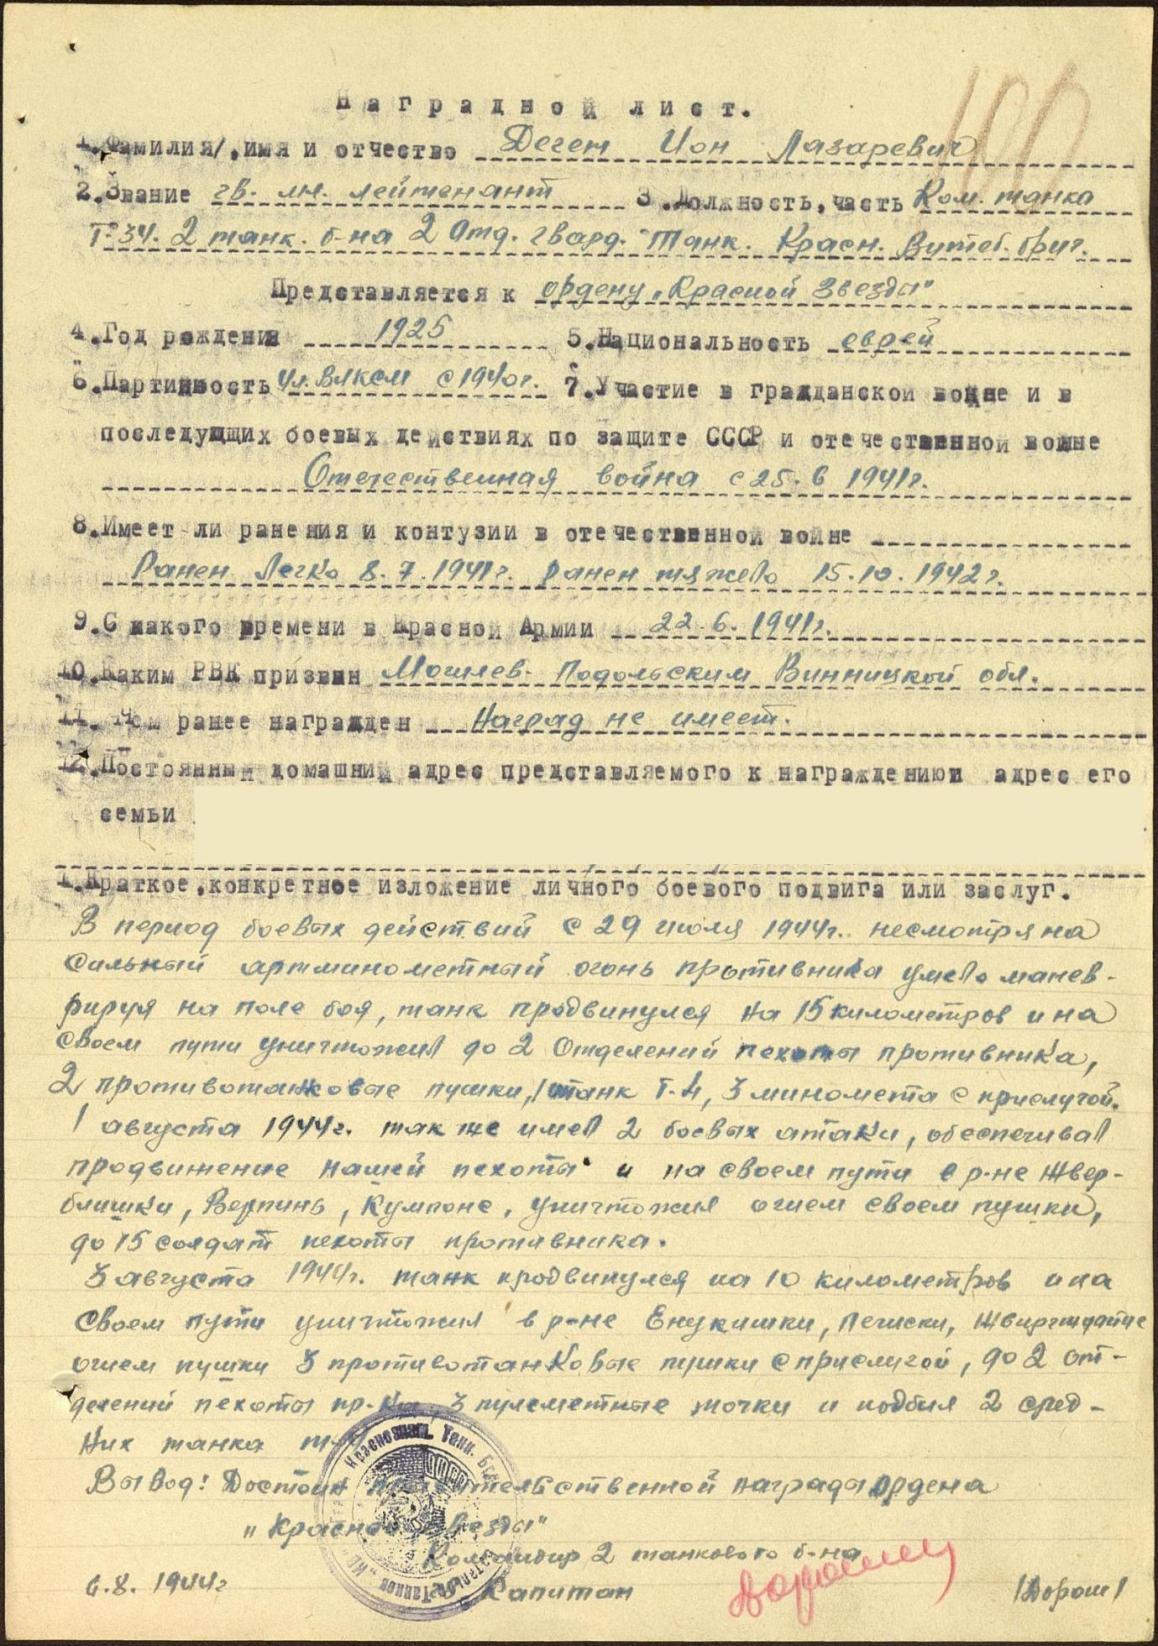 Наградной лист.
1. Фамилия, имя и отчество Деген Ион Лазаревич
2. Звание гв. мл. лейтенант 3. Должность, часть Ком. танка
Т-34. 2 танк. б-на 2 Отд. гвард. Танк. Красн. Витеб. бриг.
Представляется к ордену "Красной Звезды"
4. Год рождения 1925 5. Национальность еврей
6. Партийность чл. ВЛКСМ с 1940г. 7. Участие в гражданской войне и в
последующих боевых действиях по защите СССР и отечественной войне
Отечественная война с 25. 6 1941г.
8. Имеет ли ранения и контузии в отечественной войне
Ранен легко 8.7.1941г. ранен тяжело 15.10.1942г.
9. С какого времени в Красной Армии 22.6.1941г.
10. Каким РВК призван Могилев-Подольским Винницкой обл.
11. Чем ранее награжден Наград не имеет.
12. Постоянный домашний адрес представляемого к награждению и адрес его
семьи
1. Краткое, конкретное изложение личного боевого подвига или заслуг.
В период боевых действий с 29 июля 1944г. несмотря на
сильный артминометный огонь противника умело манев-
рируя на поле боя, танк продвинулся на 15 километров и на
своем пути уничтожил до 2 отделений пехоты противника,
2 противотанковые пушки, 1 танк Т-4, 3 миномета с прислугой.
1 августа 1944г. так же имел 2 боевых атаки, обеспечивал
продвижение нашей пехоты и на своем пути в р-не Жвер-
блишки, Верпинь, Кумпоне, уничтожил огнем своем пушки,
до 15 солдат пехоты противника.
3 августа 1944г. танк продвинулся на 10 километров и на
своем пути уничтожил в р-не Енукишки,
огнем пушки 3 противотанковые пушки с прислугой, до 2 от-
делений пехоты пр-ка, 3 пулеметные точки и подбил 2 сред-
них танка
Вывод: Достоин правительственной награды ордена
"Красной Звезды"
Командир 2 танкового б-на
6.8.1944г Капитан /Дорош/